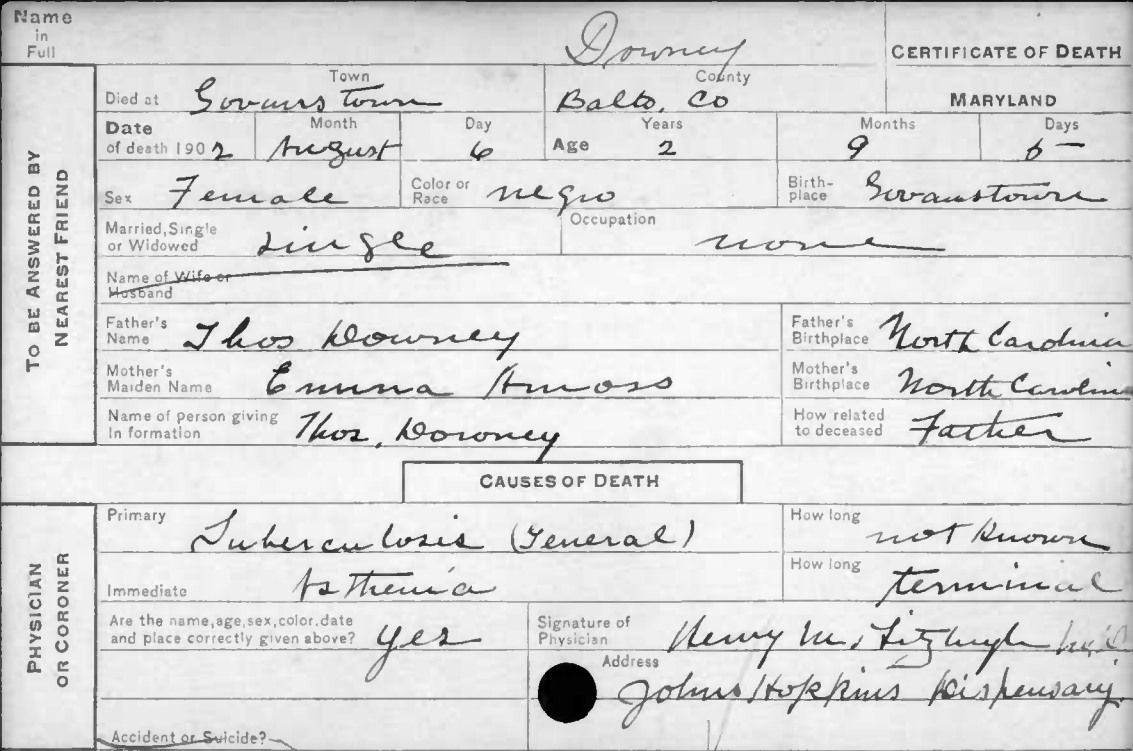 Name in Full Downey CERTIFICATE OF DEATH
Died at Town Govanstown County Balto. Co MARYLAND
Date of death 1902 Month August Day 6 Age Years 2 Months 9 Days 5
Sex Female Color or Race negro Birth-place Govanstown
Married, Single or Widowed single Occupation none
Name of Wife or Husband
Father's Name Thos Downey Father's Birthplace North Carolina
Mother's Maiden Name Emma Amoss Mother's Birthplace North Carolina
Name of person giving In formation Thos. Downey How related to deceased Father
TO BE ANSWERED BY NEAREST FRIEND
CAUSES OF DEATH
Primary Tuberculosis (General) How long not known
Immediate Asthenia How long terminal
Are the name, age, sex, color, date and place correctly given above? yes Signature of Physician Henry M. Fitzhugh M.D.
Address Johns Hopkins Dispensary.
Accident or Suicide?
PHYSICIAN OR CORONER